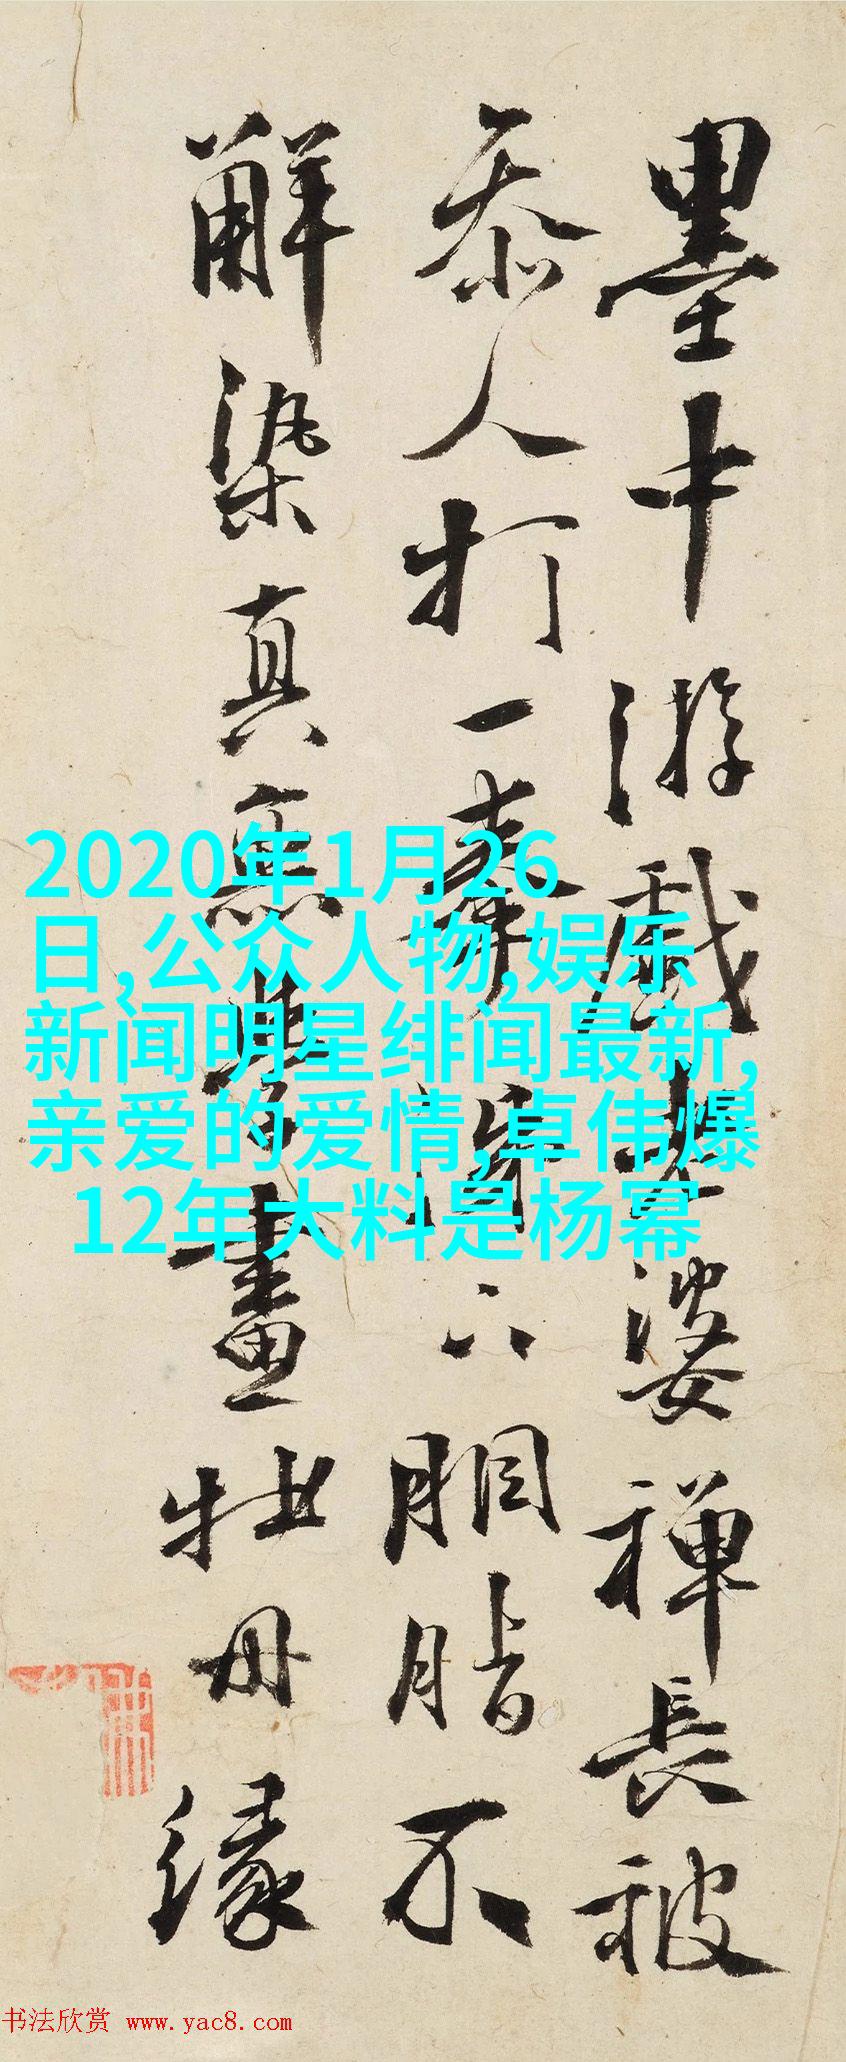 墨中游戲老婆禪長被
忝人打一拳涕下胭脂不
解染真無學畫牡丹緣
2020年1月26
日,公众人物,娱乐
新闻明星绯闻最新,
亲爱的爱情,卓伟爆
12年大料是杨幂
书法欣赏 www.yac8.com